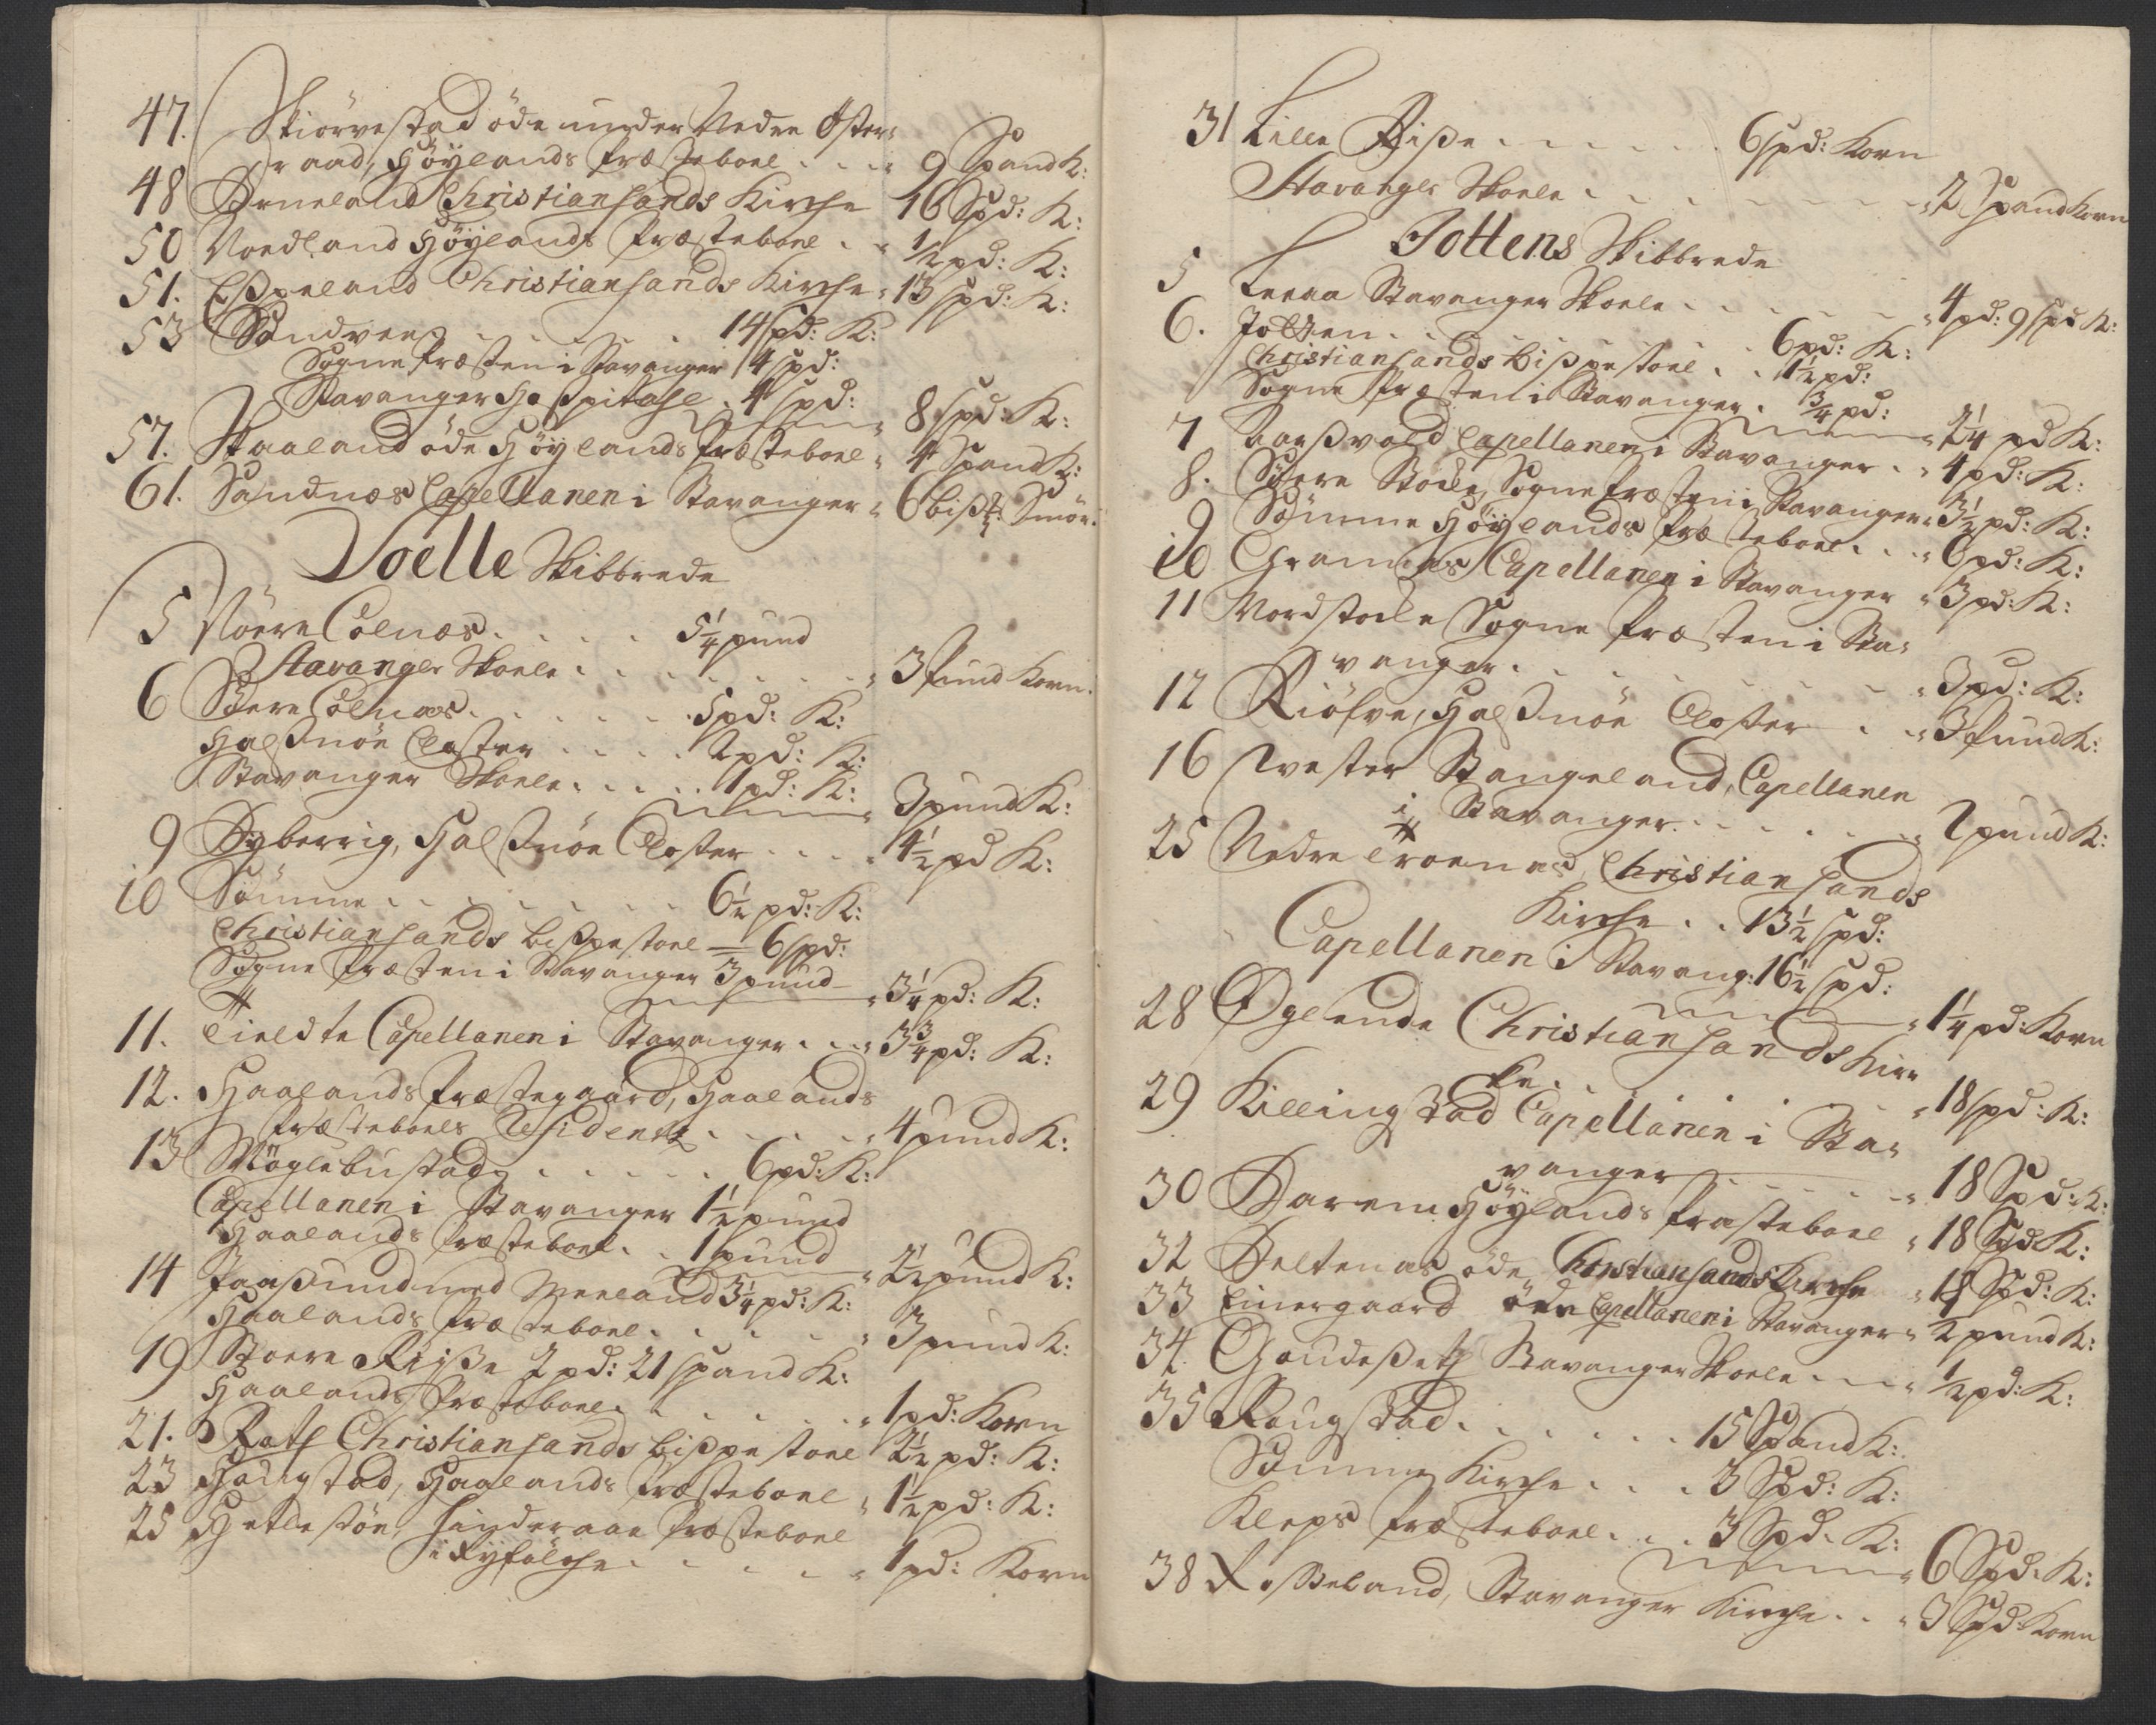 47. Skiörvestad öde under Nedre Öster-
raad, Höylands Præsteboel . . . 9 Spand K:
48 Örneland Christiansands Kirche 16 Spd: K:
50 Noedland Höylands Præsteboel . . 1/2 pd: K:
51. Espeland Christiansands Kirche . 13 spd: K:
53 Sandvee . . . . 14 spd: K:
Sogne Præsten i Stavanger 4 spd:
Stavanger Hospitahl . 4 spd:
8 spd: K:
57. Skaaland öde Höylands Præsteboel . 4 Spand K:
61. Sandnæs Capellanen i Stavanger . 6 bispd: Smör.
Soelle Skibbrede
5 Nöere Colnæs . . . . 5 1/4 pund
Stavanger Skoele . . . . . . . 3 Pund Korn.
6 Söere Colnæs . . . . . . 5 pd: K:
Halsnöe Closter . . . . 2 pd: K:
Stavanger Skoele . . . . . 1 pd: K:
3 pund K:
9 Myberrig, Halsnöe Closter . . . . 4 1/2 pd K:
10 Sömme . . . . . . . 6 1/2 pd: K:
Christiansands bispestoel — 6 spd:
Sogne Præsten i Stavanger 3 pund
3 1/4 pd: K:
11. Tieldte Capellanen i Stavanger . . . 3 3/4 pd: K:
12. Haalands Præstegaard, Haalands
Præsteboels Residentz . . . . . 4 pund K:
13 Möglebustad . . . . . . 6 pd: K:
Capellanen i Stavanger 1 1/2 pund
Haalands Præsteboel . . 1 pund
2 1/2 pund K:
14 Joasund med Meeland 3 1/4 pd: K:
Haalands Præsteboel . . . . . . 3 pund K:
19 Stoere Riisse 2 pd: 21 spand K:
Haalands Præsteboel . . . . . . 1 pd: Korn
21. Roth Christiansands bispestoel 2 1/2 pd: K:
23 Hodigstad, Haalands Præsteboel . 1 1/2 pd: K:
25 Hetlestöe, Finderaae Præsteboel
i Ryfölche . . . . . 1 pd: Korn
31 Lille Riße . . . . . . 6 spd: Korn
Stavanger Skoele . . . . . . . 2 Spand Korn
Jottens Skibbrede
5 Leeraa Stavanger Skoele . . . . . . 4 pd: 9 spd K:
6. Jotten . . . . . . 6 pd: K:
Christiansands bispestoel . . 1 1/2 pd:
Sogne Præsten i Stavanger . 3/4 pd:
2 1/4 pd K:
7 Aarßvold Capellanen i Stavanger . . 4 pd: K:
8. Söere Stocke, Sogne Præsten i Stavanger . 3 1/2 pd: K:
9 Sömme Höylands Præsteboel . . . 6 pd: K:
10 Gramnes Capellanen i Stavanger . 3 pd: K:
11 Nordstocke Sogne Præsten i Sta-
vanger . . . . . . . . 3 pd: K:
12 Riölve, Halsnöe Closter . . . 3 pund K:
16 Wester Stangeland, Capellanen
i Stavanger . . . . . . 2 pund K:
25 Nedre Troenes Christiansands
Kirche . . 13 1/2 spd:
Capellanen i Stavang: 16 1/2 spd:
1 1/4 pd: Korn
28 Øglende Christiansands Kir-
ke . . . . . . . 18 spd: K:
29 Killingstad Capellanen i Sta-
vanger . . . . . . . 18 Spd: K:
30 Barem Höylands Præsteboel . 18 Spd K:
32 Keltenæs öde, Christiansands Kirche . 18 Spd: K:
33 Einergaard öde Capellanen i Stavanger . 1/2 pund K:
34. Goudeßeth Stavanger Skoele . . . . 1/2 pd: K:
35 Rougstad . . . . . . 15 Spand K:
Sömme Kirche . . . 3 Spd: K:
Kleps Præsteboel . . . 3 Spd: K:
6 Spd: K:
38 Rosseland, Stavanger Kirche . . . 3 Spd: Korn